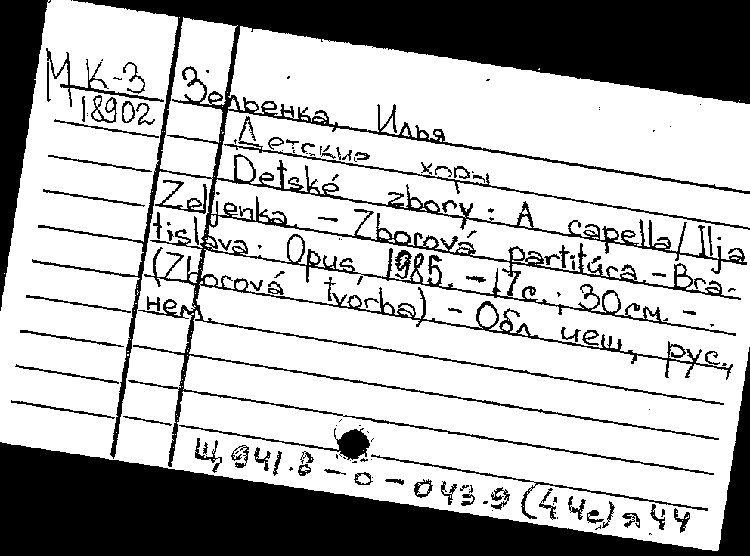 МК-3 Зельенка, Илья
18902
Детские хоры
Detské zbory: A capella/Ilja
Zeljenka. – Zborová partitúra. – Bra-
tislava: Opus, 1985. – 17с.; 30см. –
(Zborová tvorba) – Обл. чеш., рус.,
нем.
Щ941.8 – 0 – 043.9 (4Че) я44